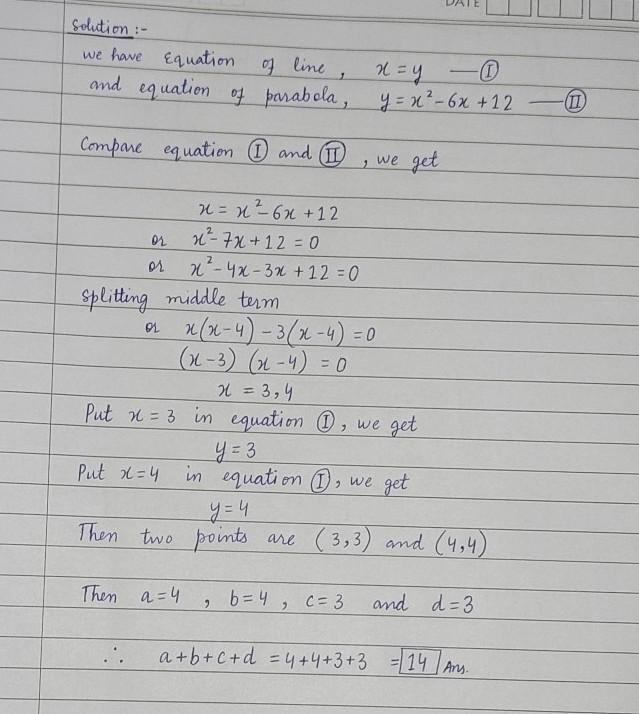 DATE
Solution :-
we have Equation of line, x = y —Ⓘ
and equation of parabola, y = x² - 6x + 12 —Ⓘ Ⓘ
Compare equation Ⓘ and ⒾⒾ, we get
x = x² - 6x + 12
or x² - 7x + 12 = 0
or x² - 4x - 3x + 12 = 0
splitting middle term
or x(x-4) - 3(x-4) = 0
(x-3) (x-4) = 0
x = 3,4
Put x = 3 in equation Ⓘ, we get
y = 3
Put x = 4 in equation Ⓘ, we get
y = 4
Then two points are (3,3) and (4,4)
Then a=4 , b=4 , c=3 and d=3
∴ a+b+c+d = 4+4+3+3 = 14 Ans.